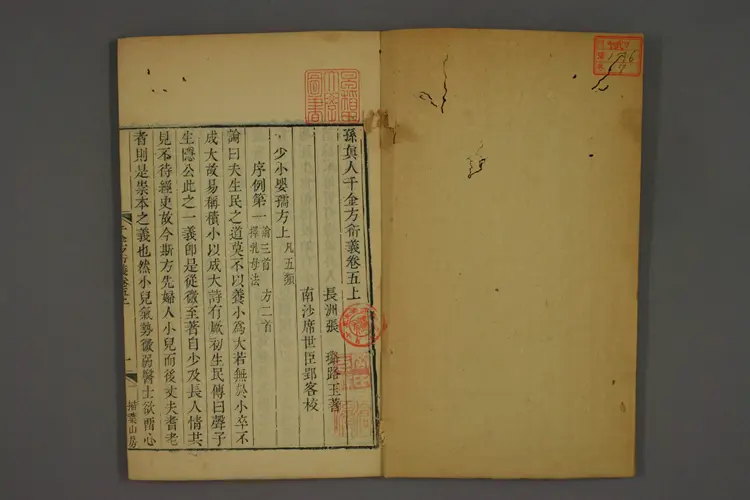 孫真人千金方衍義卷五上
長洲張 璐路玉著
南沙席世臣郢客校
少小嬰孺方上 凡五類
序例第一 論三首 方二首 擇乳母法
論曰夫生民之道莫不以養小為大若無於小卒不
成大故易稱積小以成大詩有厥初生民傳曰聲子
生隱公此之一義即是從微至著自少及長人情共
見不待經史故今斯方先婦人小兒而後丈夫耆老
者則是崇本之義也然小兒氣勢微弱醫士欲留心
千金方衍義卷五上
一
掃葉山房
圖書